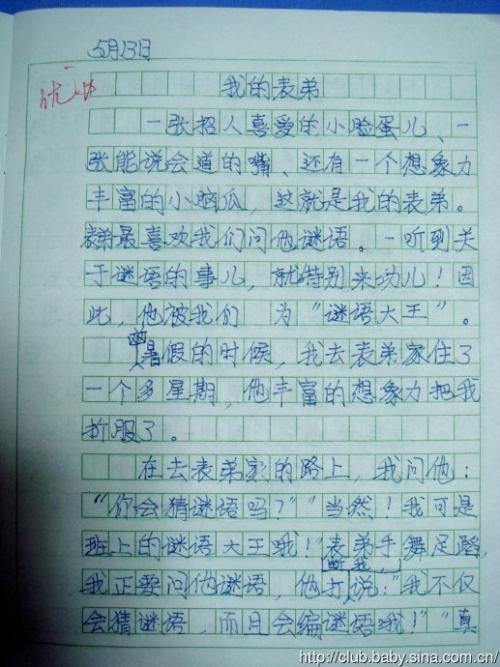 5月13日
优
我的表弟
一张招人喜爱的小脸蛋儿、一
张能说会道的嘴、还有一个想象力
丰富的小脑瓜，这就是我的表弟。
表弟最喜欢我们问他谜语。一听到关
于谜语的事儿，就特别来劲儿！因
此，他被我们 为“谜语大王”。
暑假的时候，我去表弟家住了
一个多星期，他丰富的想象力把我
折服了。
在去表弟家的路上，我问他：
“你会猜谜语吗？”“当然！我可是
班上的谜语大王哦！”表弟手舞足蹈，
断我，
我正要问他谜语，他打说：“我不仅
会猜谜语，而且会编谜语哦！”“真
http://club.baby.sina.com.cn/